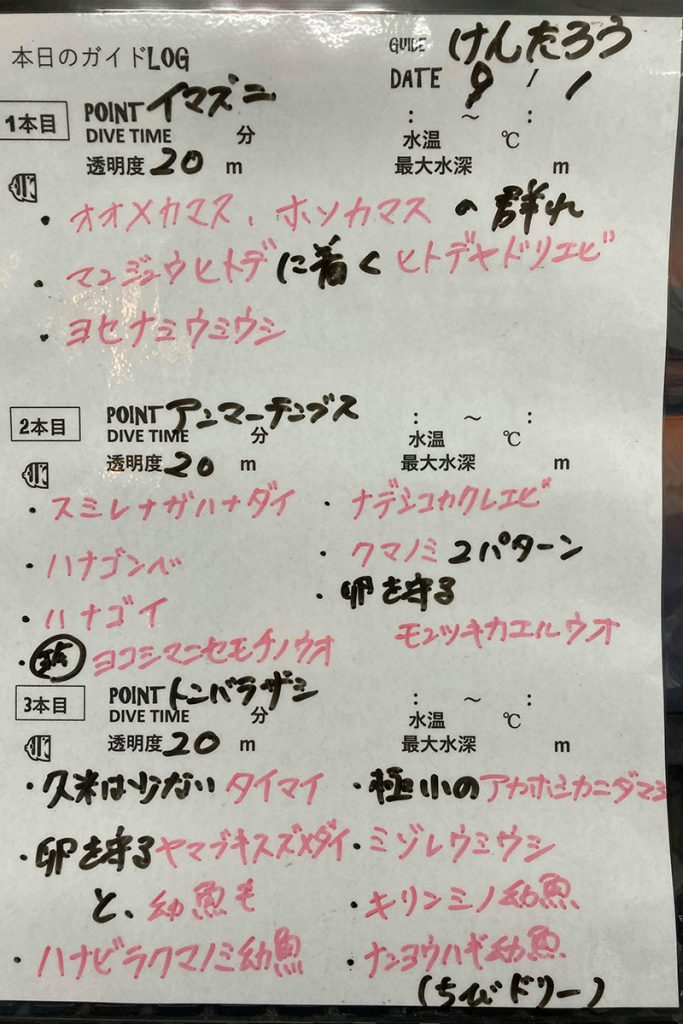 本日のガイドLOG
GUIDE けんたろう
DATE 9 / 1
1本目
POINT イマズニ
DIVE TIME 分
: ~ :
透明度 20 m
水温 ℃
最大水深 m
・オオメカマス、ホソカマス の群れ
・マンジュウヒトデに着くヒトデヤドリエビ
・ヨセナミウミウシ
2本目
POINT アンマーテンブス
DIVE TIME 分
: ~ :
透明度 20 m
水温 ℃
最大水深 m
・スミレナガハナダイ
・ハナゴンベ
・ハナゴイ
・ヨコシマニセモチノウオ
・ナデシコカクレエビ
・クマノミ 2パターン
・卵を守る
モンツキカエルウオ
3本目
POINT トンバラザシ
DIVE TIME 分
: ~ :
透明度 20 m
水温 ℃
最大水深 m
・久米は少ないタイマイ
・卵を守るヤマブキスズメダイ
と、幼魚も
・ハナビラクマノミ幼魚
・極小のアカホシカニダマシ
・ミゾレウミウシ
・キリンミノ幼魚
・ナンヨウハギ幼魚
(ちびドリー)